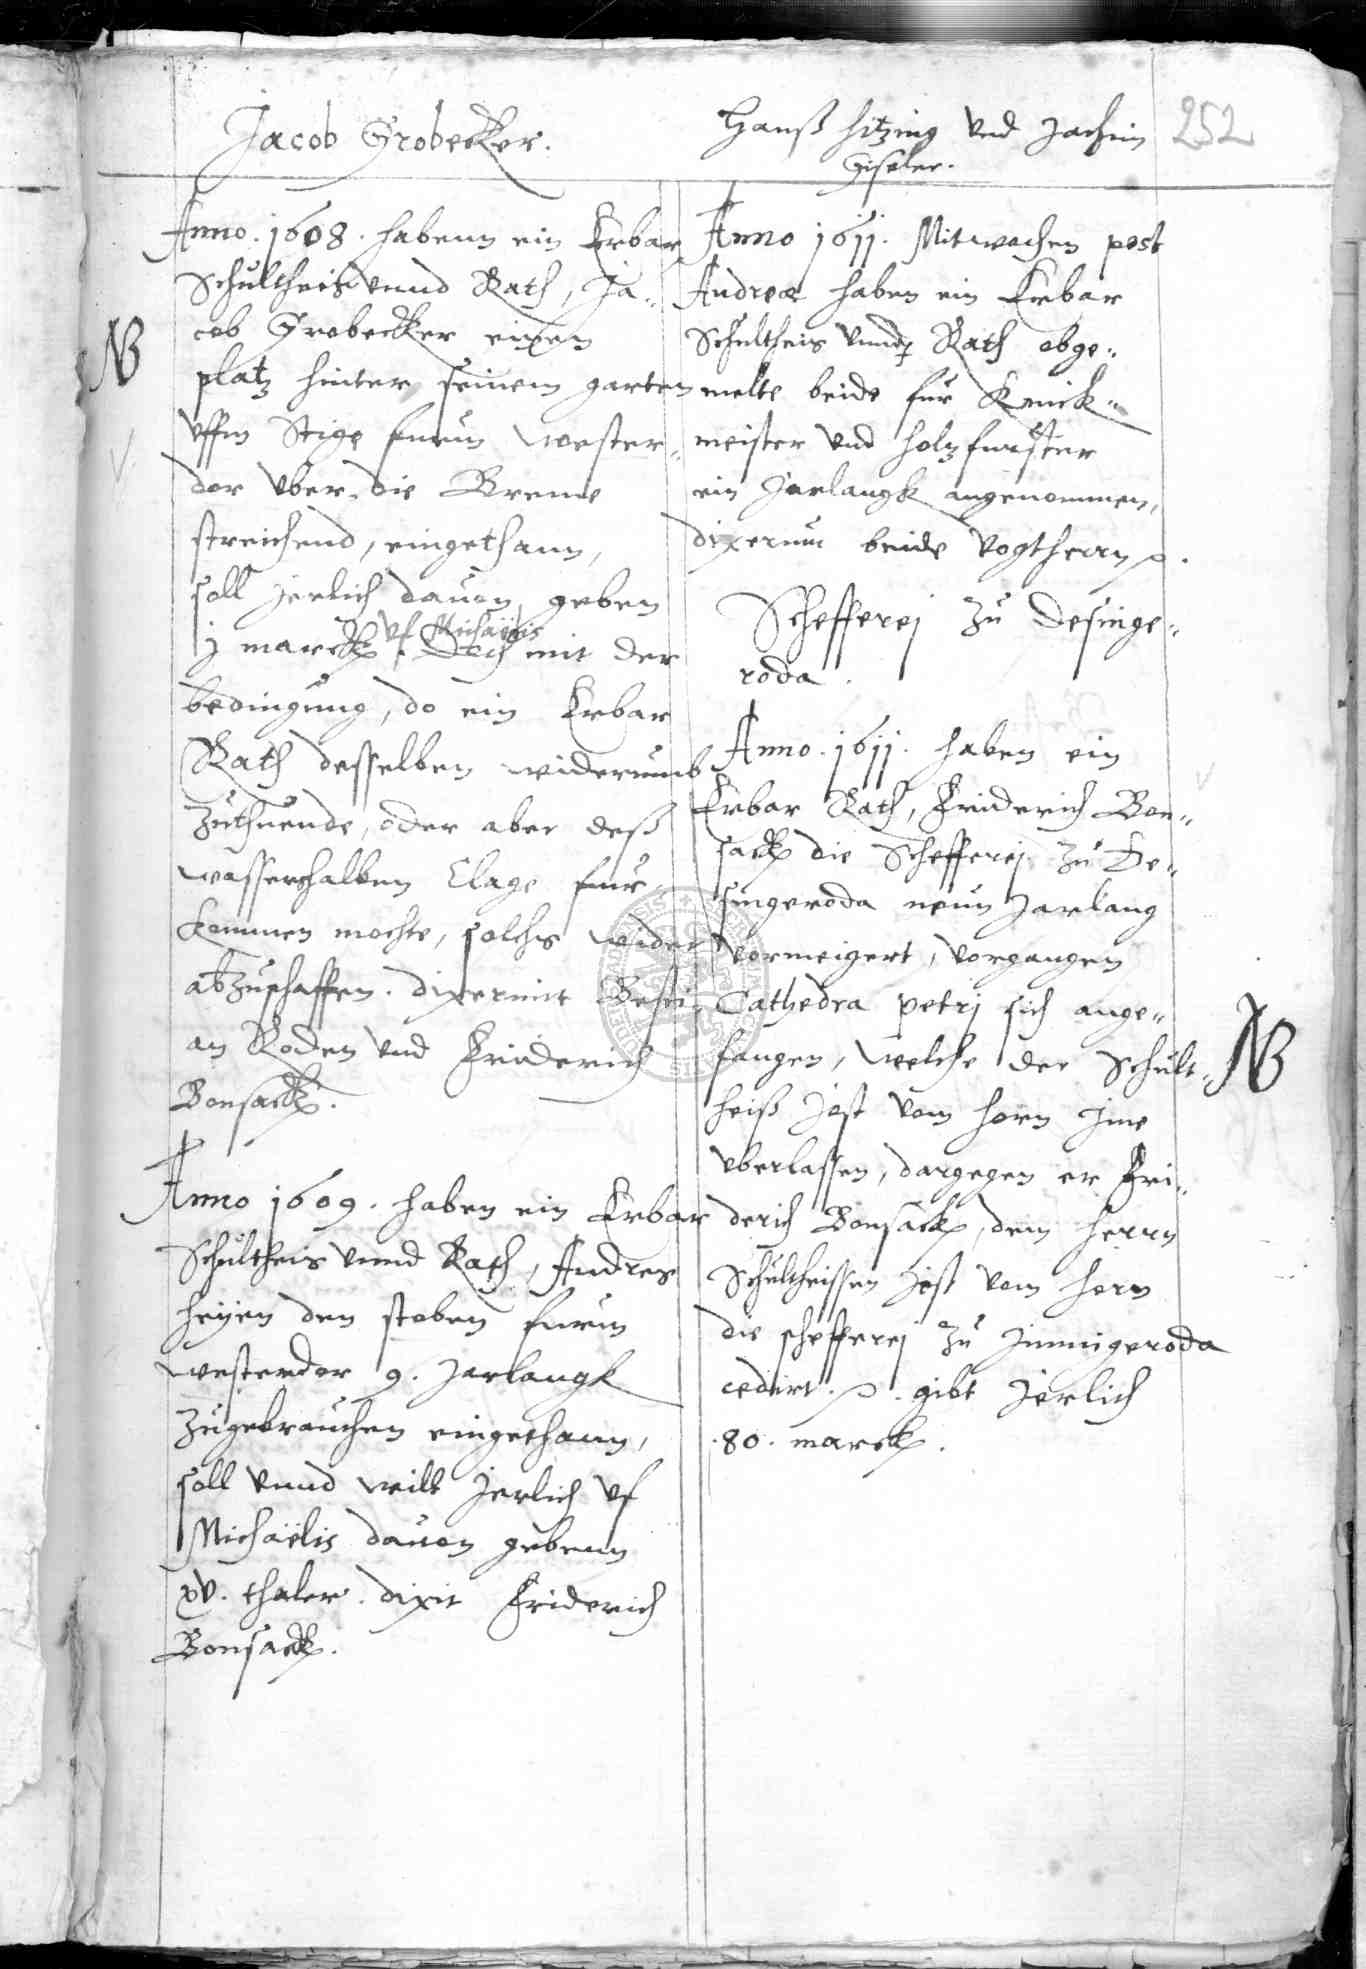 252
Jacob Grobecker.
Anno. 1608. habenn ein Erbar
Schultheis vnnd Rath, Ja-
cob Grobecker einen
NB
platz hinter seinem garten
vffm Stige furm wester-
dor vber die Breme
streichend, eingethann,
soll jerlich dauon geben
j marck vf Michaëlis. Doch mit der
bedingung, do ein Erbar
Rath desselben widerumb
zuthuende, oder aber deß
wassershalben Clage fur-
kommen mochte, solchs wider
abzuschaffen. dixerunt
an Roden vnd Friderich
Bonsack.
Anno 1609. haben ein Erbar
Schultheis vnnd Rath, Andres
Heyen den stoben furm
westerdor 9. Jarlangk
zugebrauchen eingethann,
soll vnnd will Jerlich vf
Michaëlis dauon gebenn
xv. thaler. dixit Friderich
Bonsack.
Hanß Hitzing vnd Jachim
Giseler.
Anno 1611. Mitwochen post
Andreæ haben ein Erbar
Schultheis vnnd Rath obge-
melte beide fur Knick-
meister vnd holzfurster
ein Jarlangk angenommen,
dixerunt beide Vogtherrn
Schefferej zu Desinge-
roda.
Anno. 1611. haben ein
Erbar Rath, Friderich Bon-
sack die Schefferej zu De-
singeroda neun Jarlang
vormeigert, vorgangen
Cathedra petrj sich ange-
fangen, welche der Schult-
NB
heiß Jost vom Horn jme
vberlassen, dargegen er Fri-
derich Bonsack, dem Herrn
Schultheissen Jost vom Horn
die schefferej zu Jmmigeroda
cedirt. gibt Jerlich
.80. marck.